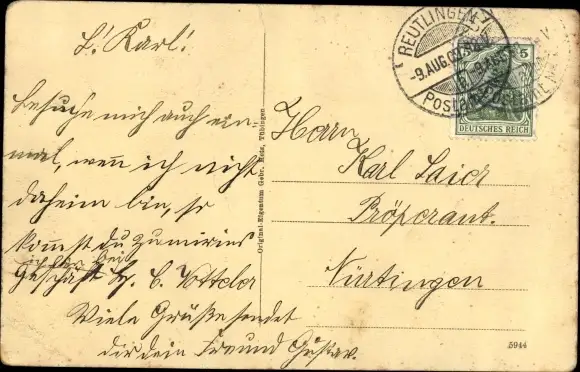 L. Karl!
Besuche mich auch ein-
mal, wenn ich nicht
daheim bin, so
kommst du zu mir ins
Geschäft
Viele Grüße sendet
dir dein Freund Gustav.
Original-Eigentum Gebr. Metz, Tübingen
REUTLINGEN
-9.AUG.09
5
DEUTSCHES REICH
Herrn
Karl
Nürtingen
5944